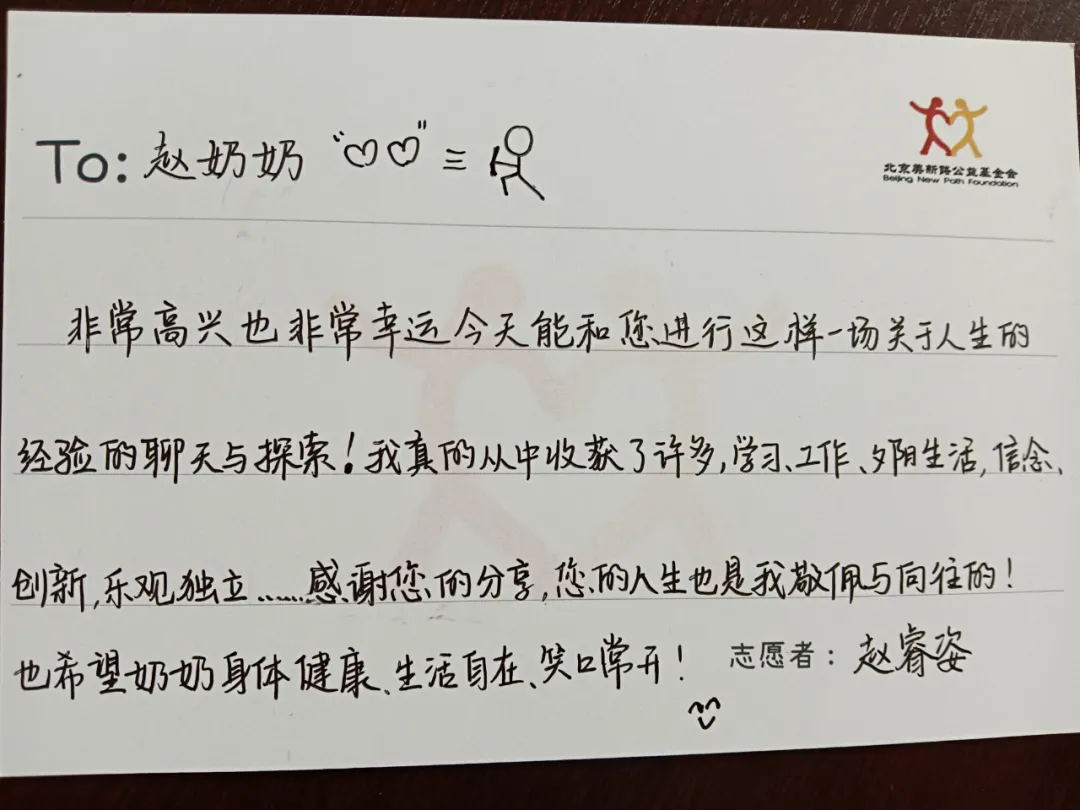 To: 赵奶奶 “♡♡”
北京美新路公益基金会
Beijing New Path Foundation
非常高兴也非常幸运今天能和您进行这样一场关于人生的
经验的聊天与探索!我真的从中收获了许多,学习、工作、夕阳生活,信念、
创新,乐观独立……感谢您的分享,您的人生也是我敬佩与向往的!
也希望奶奶身体健康、生活自在、笑口常开!
志愿者:赵睿姿